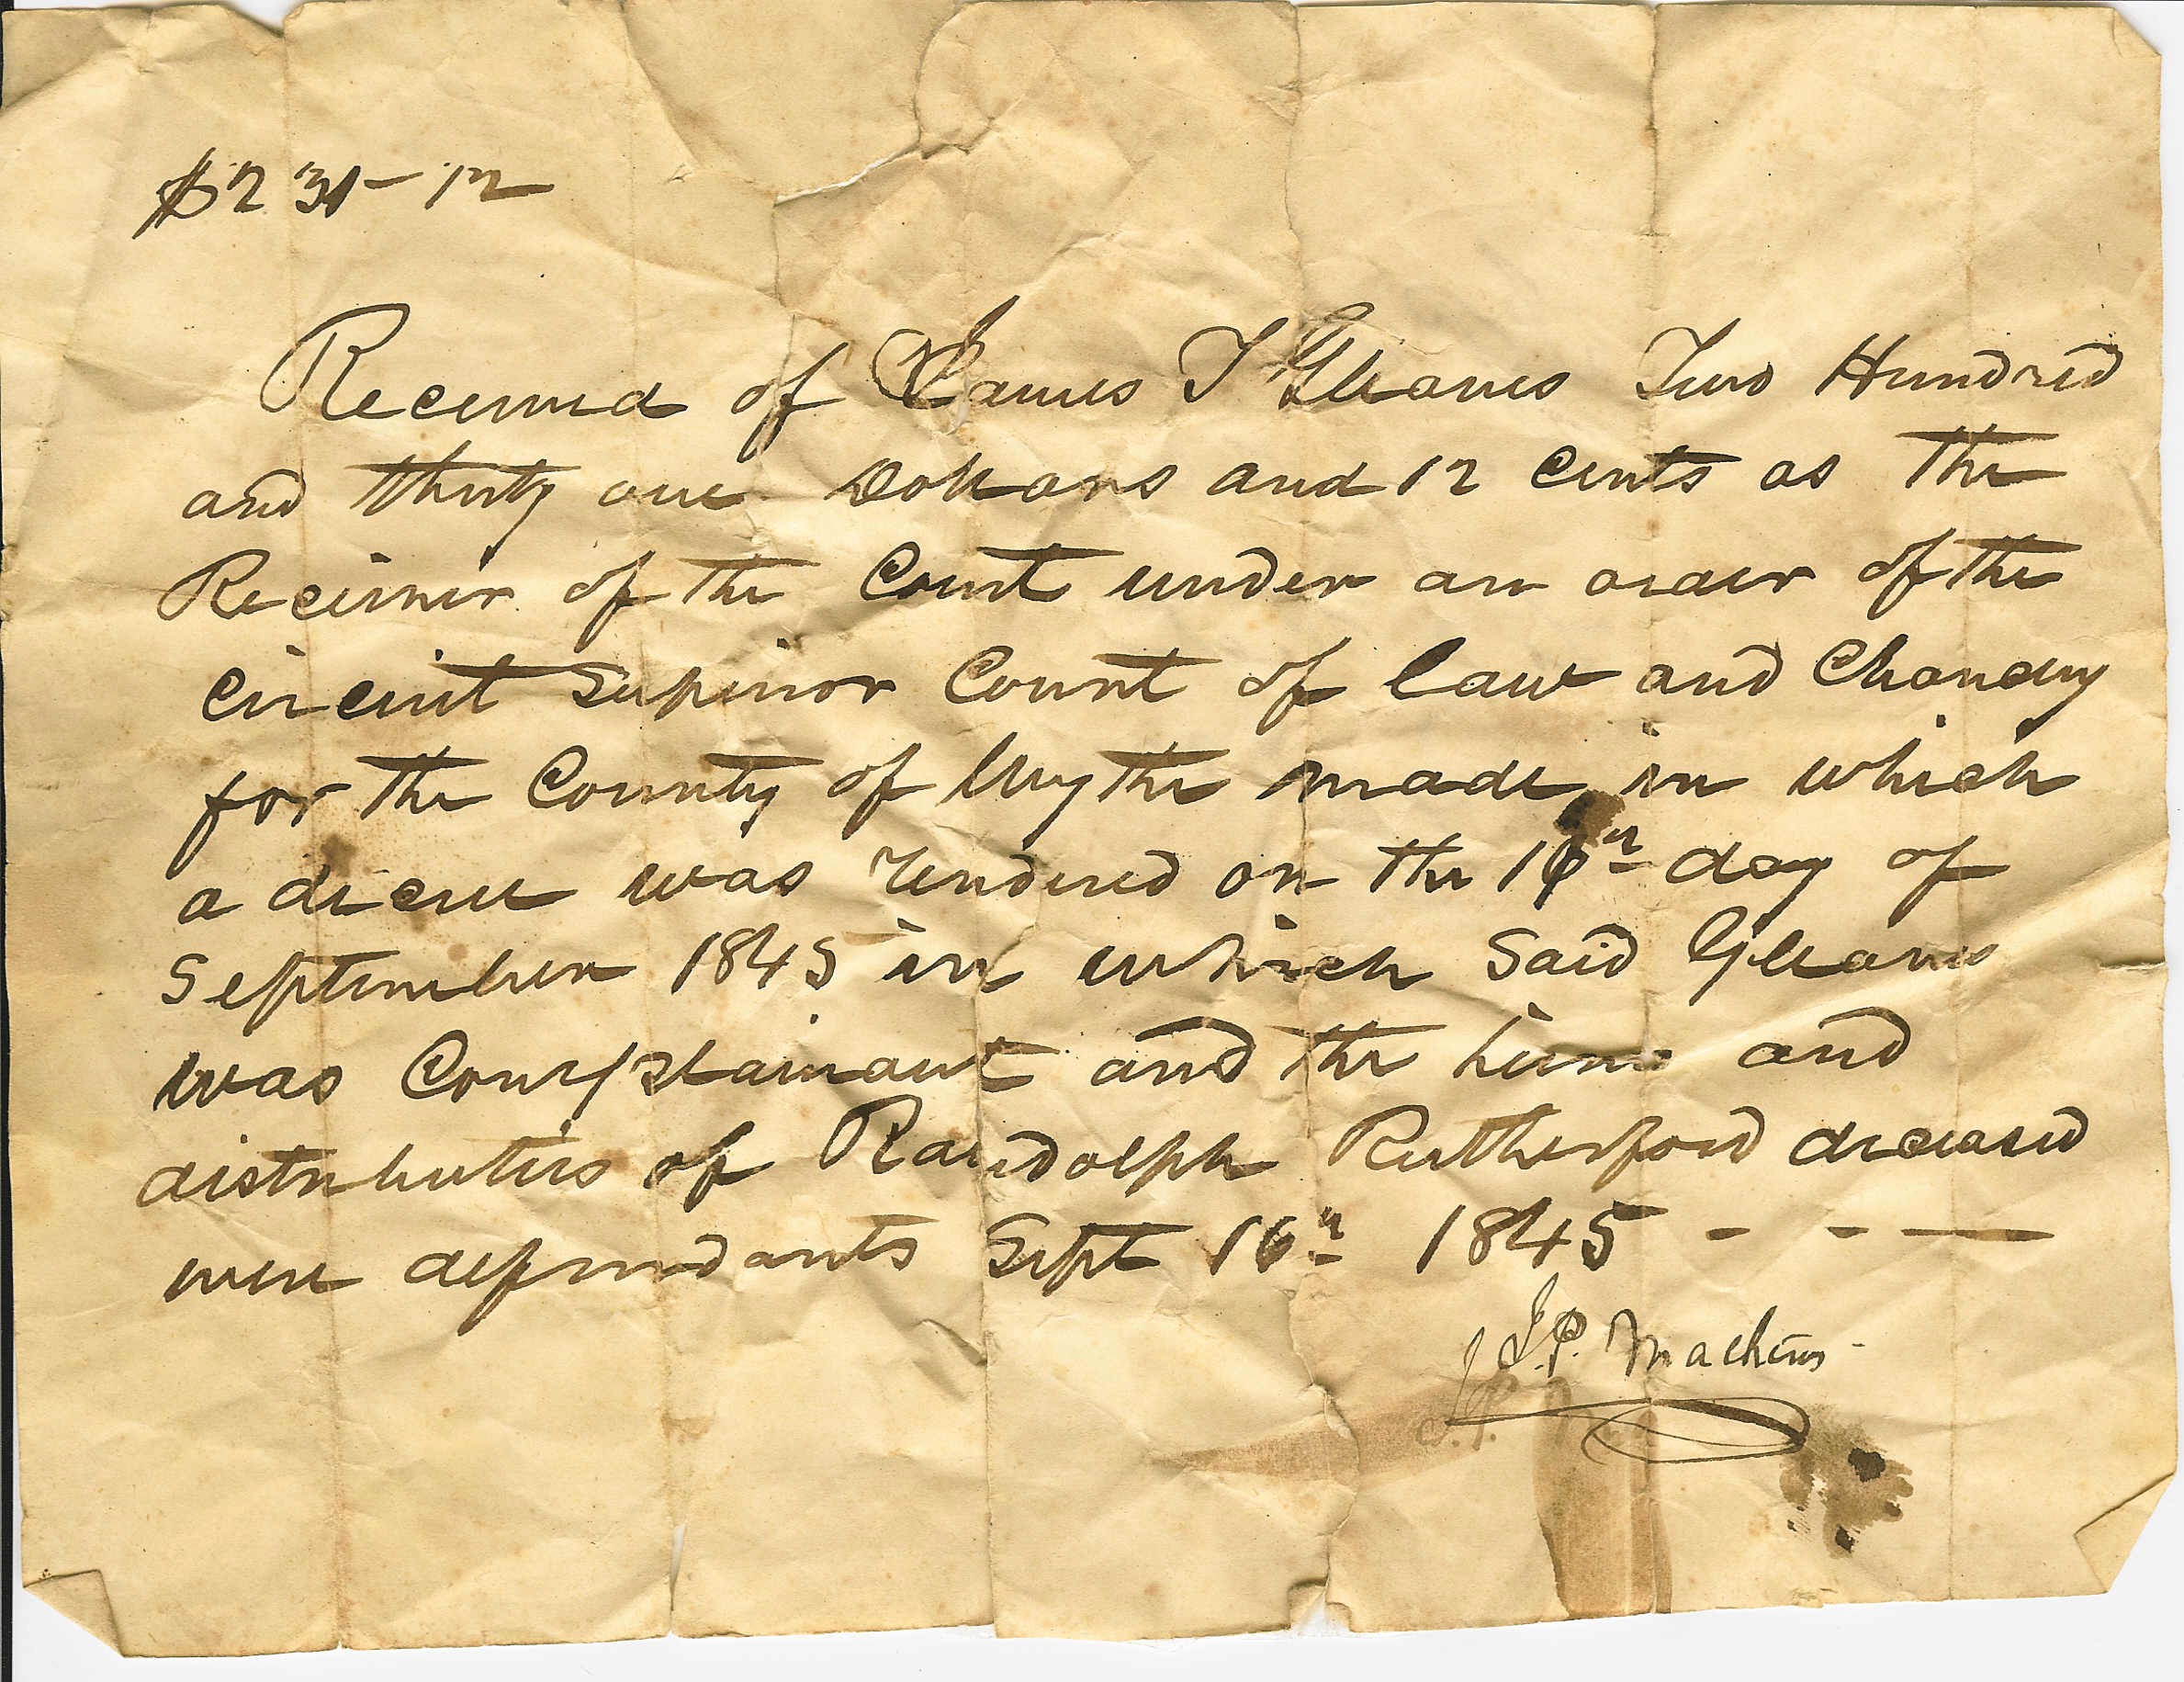 $231-12
Received of James T Gleaves Two Hundred
and thirty one Dollars and 12 cents as the
Receiver of the Court under an order of the
Circuit Superior Court of Law and Chancery
for the County of Wythe made in which
a decree was rendered on the 16th day of
September 1845 in which said Gleaves
was Complainant and the heirs and
distributees of Randolph Rutherford deceased
were defendants Sept 16th 1845 - - —
J.P. Mathews
J.P.